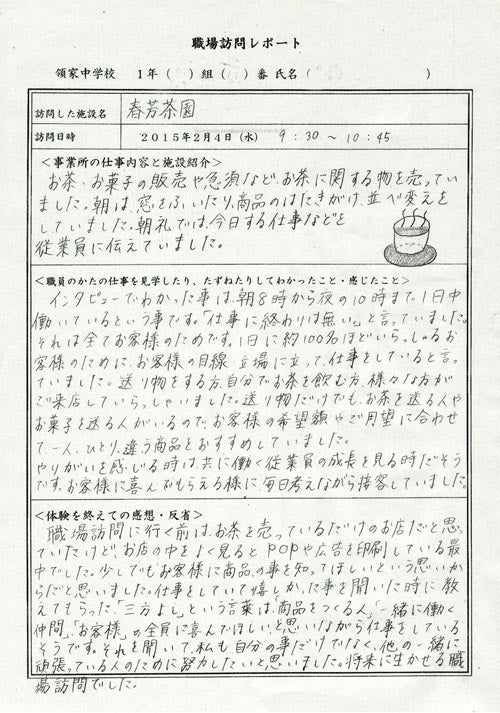 職場訪問レポート
領家中学校　1年（　）組（　）番 氏名（　　　　）
訪問した施設名　春芳茶園
訪問日時　2015年2月4日（水）　9:30～10:45
＜事業所の仕事内容と施設紹介＞
お茶・お菓子の販売や急須など、お茶に関する物を売ってい
ました。朝は、窓をふいたり、商品のはたきがけ、並べ変えを
していました。朝礼では、今日する仕事などを
従業員に伝えていました。
＜職員のかたの仕事を見学したり、たずねたりしてわかったこと・感じたこと＞
インタビューでわかった事は、朝8時から夜の10時まで1日中
働いているという事です。「仕事に終わりは無い。」と言っていました。
それは全てお客様のためです。1日に約100名ほどいらっしゃるお
客様のために、お客様の目線・立場に立って、仕事をしていると言っ
ていました。送り物をする方、自分でお茶を飲む方、様々な方が
ご来店していらっしゃいました。送り物だけでも、お茶を送る人や
お菓子を送る人がいるので、お客様の希望額やご用望に合わせ
て一人、ひとり、違う商品をおすすめしていました。
やりがいを感じる時は、共に働く従業員の成長を見る時だそう
です。お客様に喜んでもらえる様に毎日考えながら接客していました。
＜体験を終えての感想・反省＞
職場訪問に行く前は、お茶を売っているだけのお店だと思っ
ていたけど、お店の中をよく見るとPOPや広告を印刷している最
中でした。少しでもお客様に商品の事を知ってほしいという思いか
らだと思いました。仕事をしていて嬉しかった事を聞いた時に教
えてもらった、「三方よし」という言葉は、「商品をつくる人」「一緒に働く
仲間」「お客様」の全員に喜んでほしいと思いながら仕事をしている
そうです。それを聞いて、私も自分の事だけでなく、他の一緒に
頑張っている人のために努力したいと思いました。将来に生かせる職
場訪問でした。